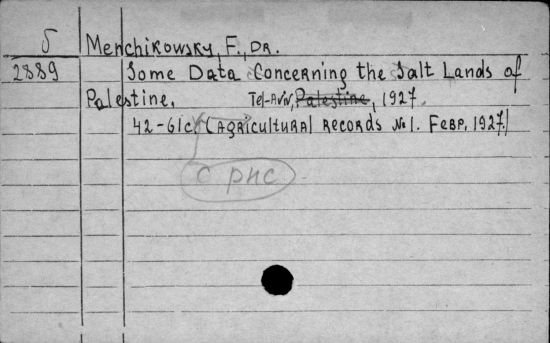 5 Menchikowsky, F., DR.
2889 Some Data Concerning the Salt Lands of
Palestine. Tel-Aviv, Palestine, 1927.
42-61c. (Agricultural Records №1. Febr, 1927.)
с рис